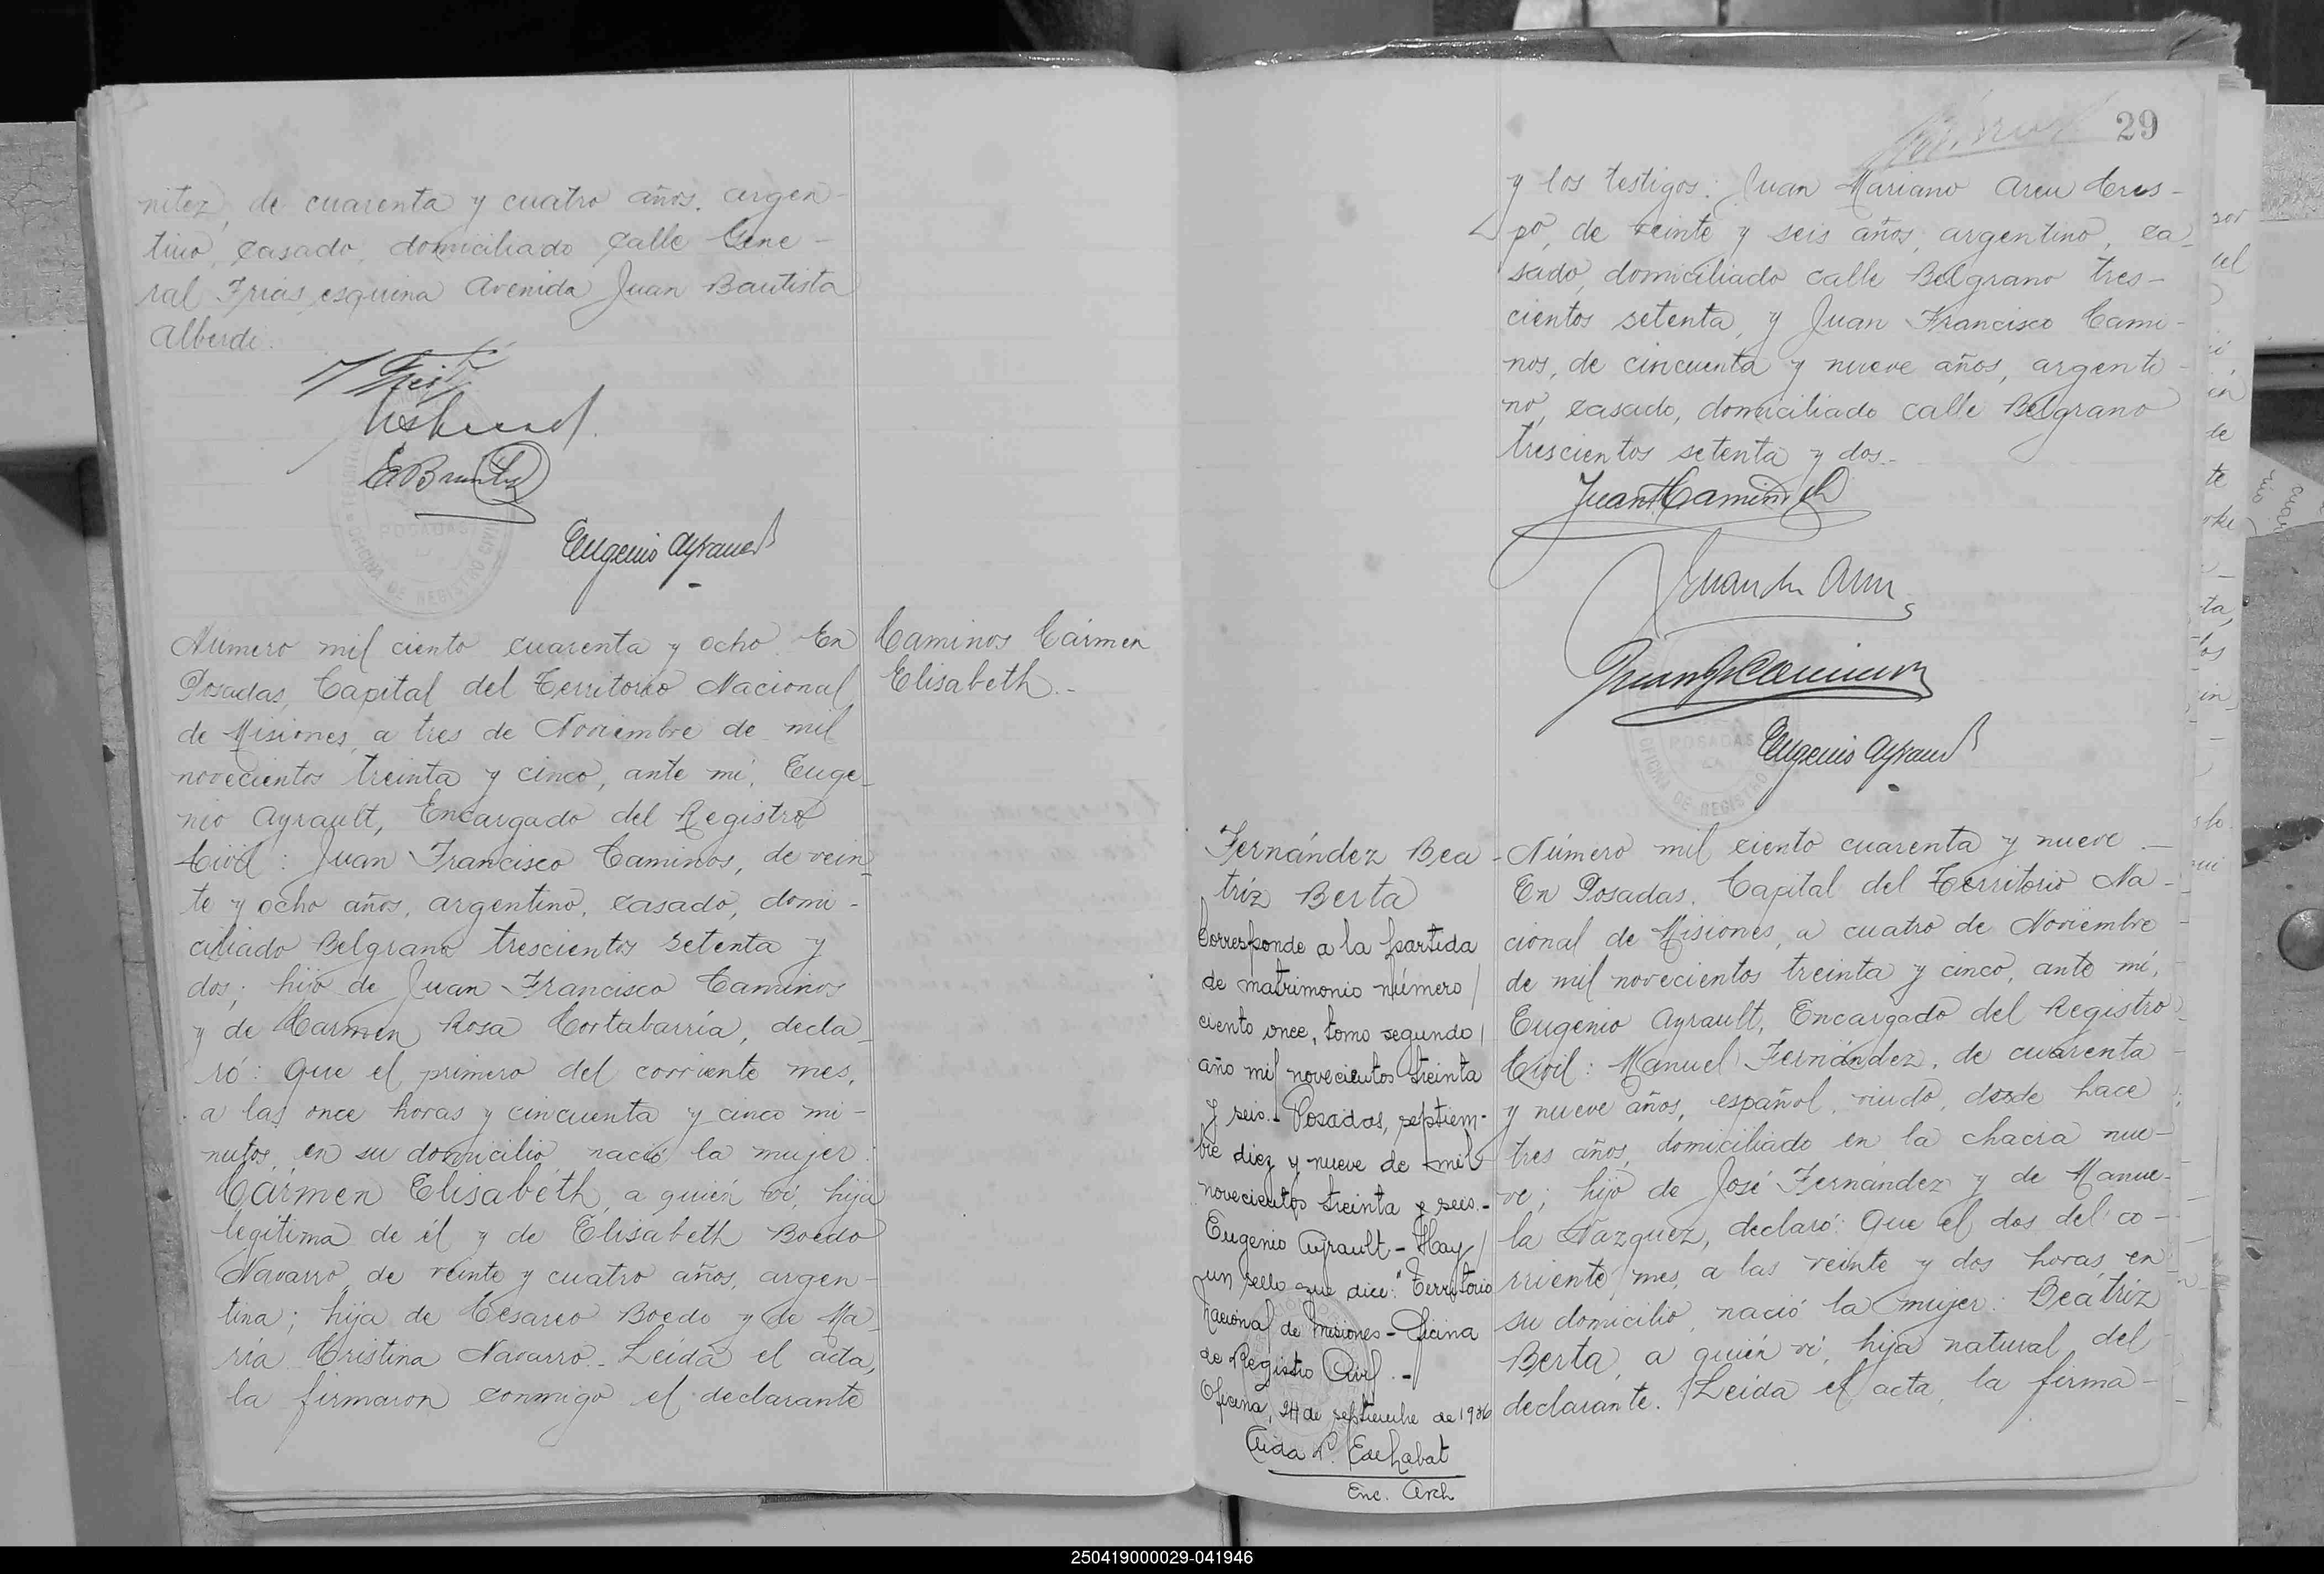 nitez, de cuarenta y cuatro años, argen-
tino, casado, domiciliado calle Gene-
ral Frias esquina Avenida Juan Bautista
Alberdi.
Eugenio Ayrault
POSADAS
OFICINA DE REGISTRO CIVIL
Número mil ciento cuarenta y ocho. En
Posadas, Capital del Territorio Nacional
de Misiones, a tres de Noviembre de mil
novecientos treinta y cinco, ante mí, Euge-
nio Ayrault, Encargado del Registro
Civil: Juan Francisco Caminos, de vein-
te y ocho años, argentino, casado, domi-
ciliado Belgrano trescientos setenta y
dos; hijo de Juan Francisco Caminos
y de Carmen Rosa Cortabarría, decla-
ró: Que el primero del corriente mes,
a las once horas y cincuenta y cinco mi-
nutos, en su domicilio, nació la mujer:
Cármen Elisabeth, a quién ví, hija
legítima de él y de Elisabeth Boedo
Navarro, de veinte y cuatro años, argen-
tina; hija de Cesareo Boedo y de Ma-
ría Cristina Navarro. Leída el acta,
la firmaron conmigo el declarante
Caminos Cármen
Elisabeth.-
29
y los testigos: Juan Mariano Areu Cres-
po, de veinte y seis años, argentino, ca-
sado, domiciliado calle Belgrano tres-
cientos setenta, y Juan Francisco Cami-
nos, de cincuenta y nueve años, argenti-
no, casado, domiciliado calle Belgrano
trescientos setenta y dos.-
Juan F Caminos
Juan M Areu
Juan F Caminos
POSADAS
OFICINA DE REGISTRO
Eugenio Ayrault
Fernández Bea-
triz Berta
Corresponde a la partida
de matrimonio número/
ciento once, tomo segundo/
año mil novecientos treinta
y seis.- Posadas, septiem-
bre diez y nueve de mil
novecientos treinta y seis.-
Eugenio Ayrault - Hay/
un sello que dice: "Territorio
Nacional de Misiones - Oficina
de Registro Civil.-
Oficina, 24 de septiembre de 1936
Aida P. Enc. Arch
Número mil ciento cuarenta y nueve.-
En Posadas, Capital del Territorio Na-
cional de Misiones, a cuatro de Noviembre
de mil novecientos treinta y cinco, ante mí,
Eugenio Ayrault, Encargado del Registro
Civil: Manuel Fernández, de cuarenta
y nueve años, español, viudo, desde hace
tres años, domiciliado en la chacra nue-
ve; hijo de José Fernández y de Manue-
la Vazquez, declaró: Que el dos del co-
rriente mes, a las veinte y dos horas, en
su domicilio, nació la mujer: Beatriz
Berta, a quién ví, hija natural del
declarante. Leída el acta, la firma-
250419000029-041946